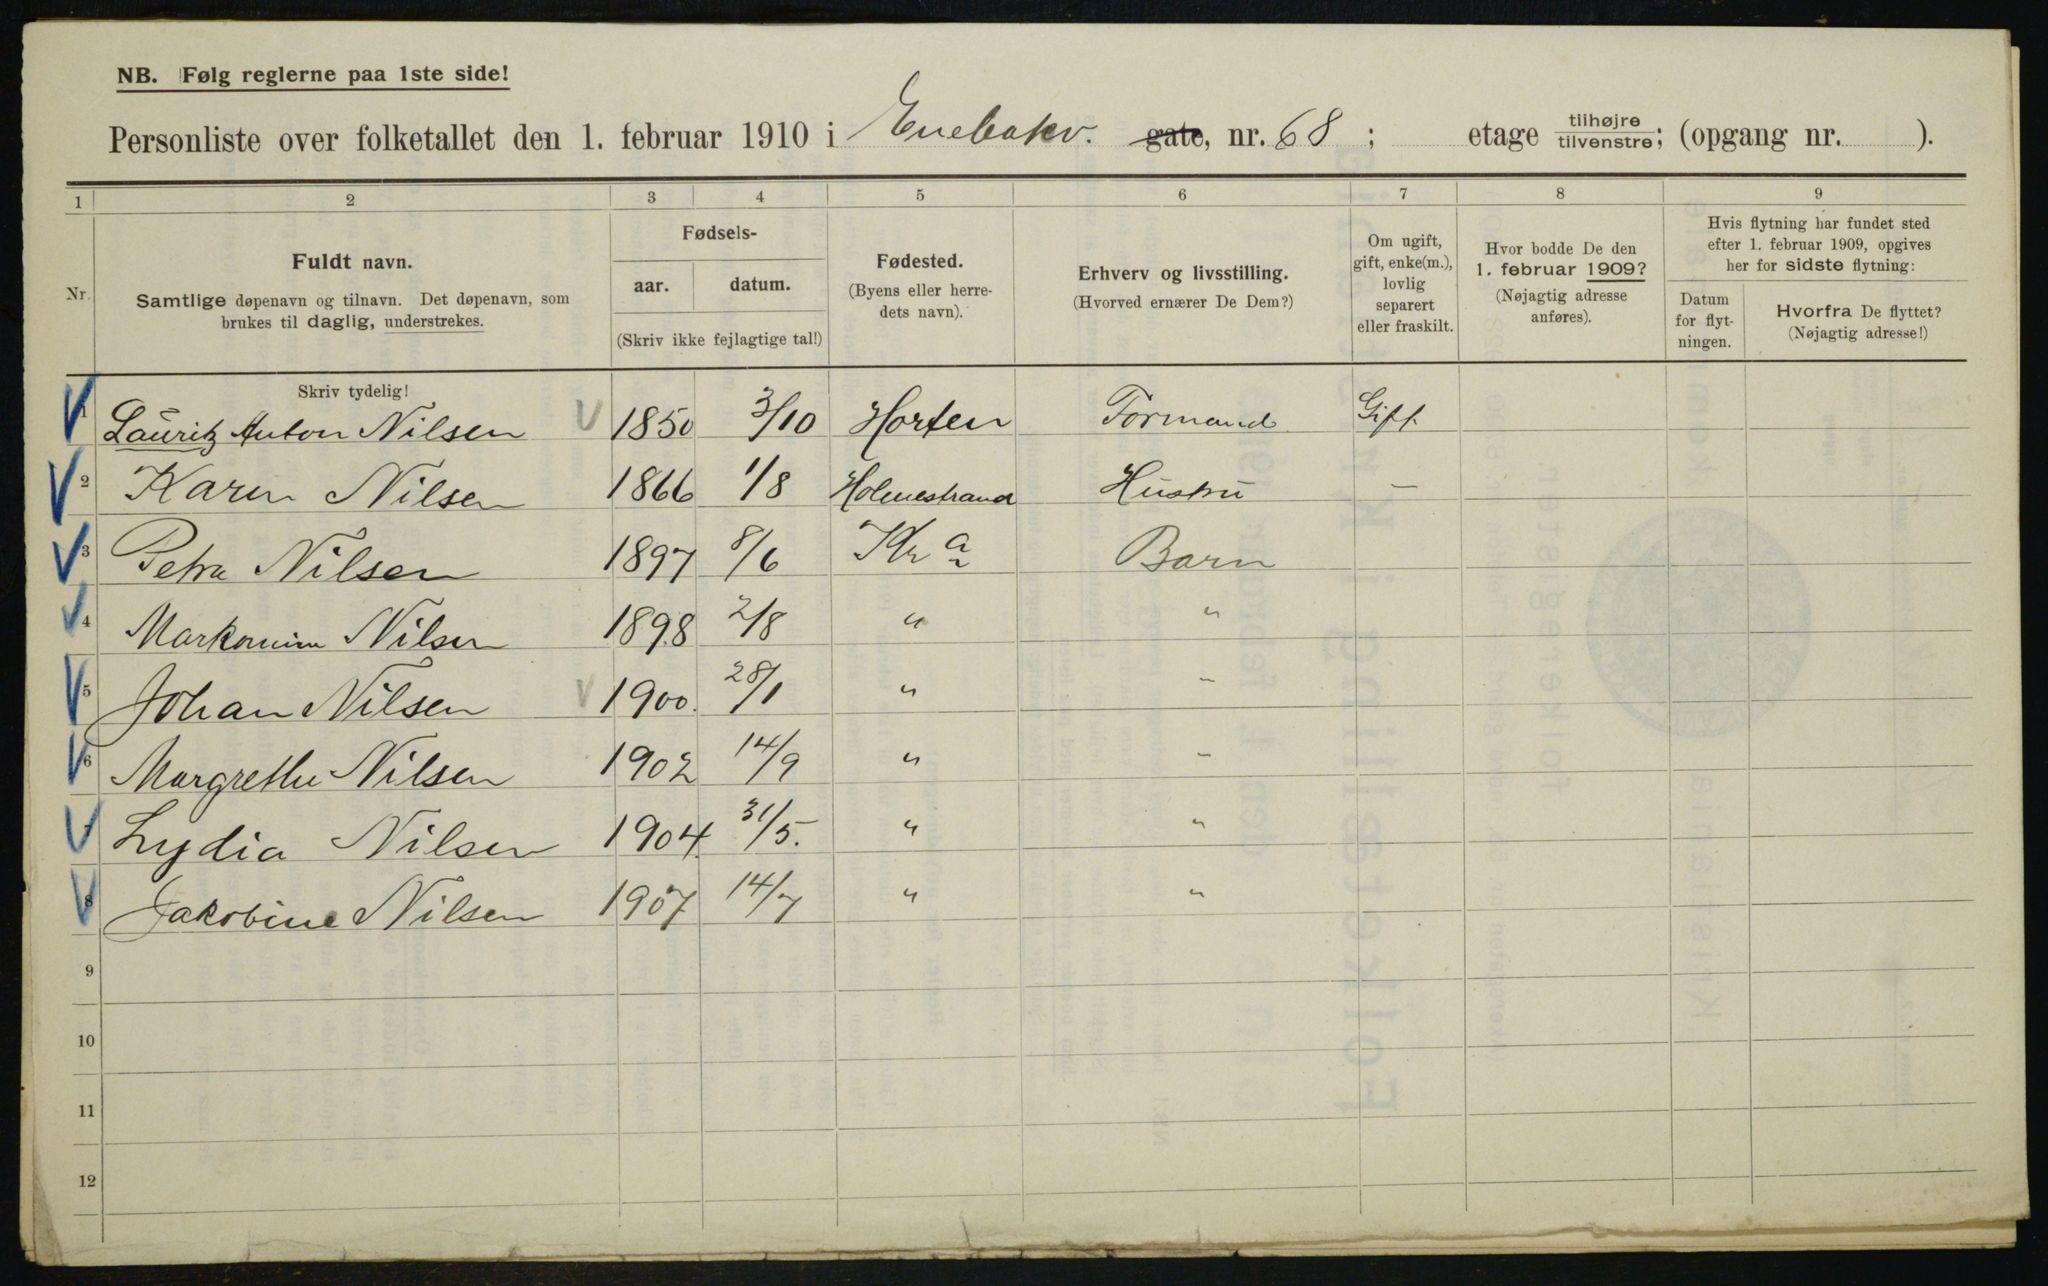 NB. Følg reglerne paa 1ste side!
Personliste over folketallet den 1. februar 1910 i Enebakv. gate, nr. 68 ; etage tilhøjre tilvenstre; (opgang nr. ).
1 2 3 4 5 6 7 8 9
Nr.
Fuldt navn.
Samtlige døpenavn og tilnavn. Det døpenavn, som
brukes til daglig, understrekes.
Fødsels-
aar. datum.
(Skriv ikke fejlagtige tal!)
Fødested.
(Byens eller herre-
dets navn).
Erhverv og livsstilling.
(Hvorved ernærer De Dem?)
Om ugift,
gift, enke(m.),
lovlig
separert
eller fraskilt.
Hvor bodde De den
1. februar 1909?
(Nøjagtig adresse
anføres).
Hvis flytning har fundet sted
efter 1. februar 1909, opgives
her for sidste flytning:
Datum
for flyt-
ningen.
Hvorfra De flyttet?
(Nøjagtig adresse!)
Skriv tydelig!
1 Lauritz Anton Nilsen 1850 3/10 Horten Formand Gift
2 Karen Nilsen 1866 1/8 Holmestrand Hustru –
3 Petra Nilsen 1897 8/6 Kra Barn
4 Nilsen 1898 2/8 " "
5 Johan Nilsen 1900. 28/1 " "
6 Margrethe Nilsen 1902 14/9 " "
7 Lydia Nilsen 1904. 31/5. " "
8 Jakobine Nilsen 1907 14/7 " "
9
10
11
12